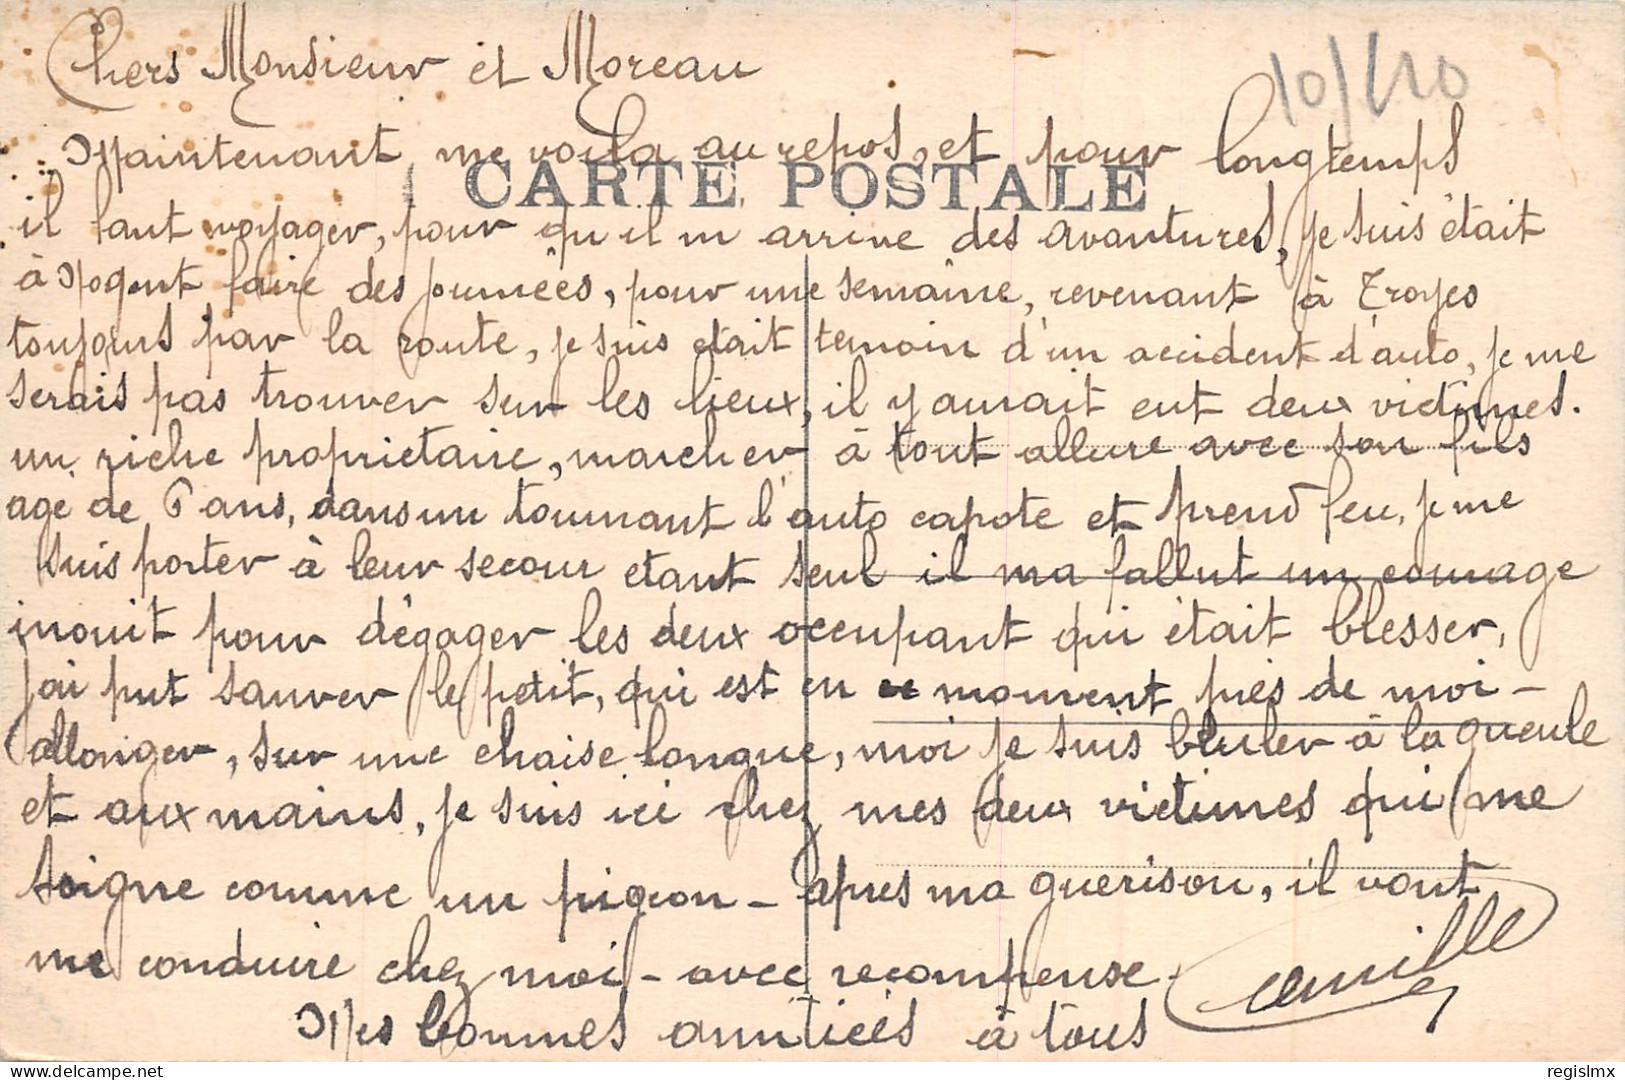 Chers Monsieur et Moreau
10/110
Maintenant, me voila au repos, et pour longtemps
CARTE POSTALE
il faut voyager, pour qu'il m'arrive des avantures, je suis était
à Nogent faire des journées, pour une semaine, revenant à Troyes
toujours par la route, je suis etait temoin d'un accident d'auto, je me
serais pas trouver sur les lieux, il y aurait eut deux victimes.
un riche proprietaire, marcher à tout allure avec son fils
agé de 6 ans, dans un tournant l'auto capote et prend feu, je me
suis porter à leur secour etant seul il ma fallut un courage
inouit pour dégager les deux occupant qui était blesser,
j'ai put sauver le petit, qui est en ce moment près de moi -
allonger, sur une chaise longue, moi je suis bluler à la gueule
et aux mains, je suis ici chez mes deux victimes qui me
soigne comme un pigeon - apres ma guerison, il vont
me conduire chez moi - avec recompense.
Camille
Mes bonnes amitiées à tous
regislmx